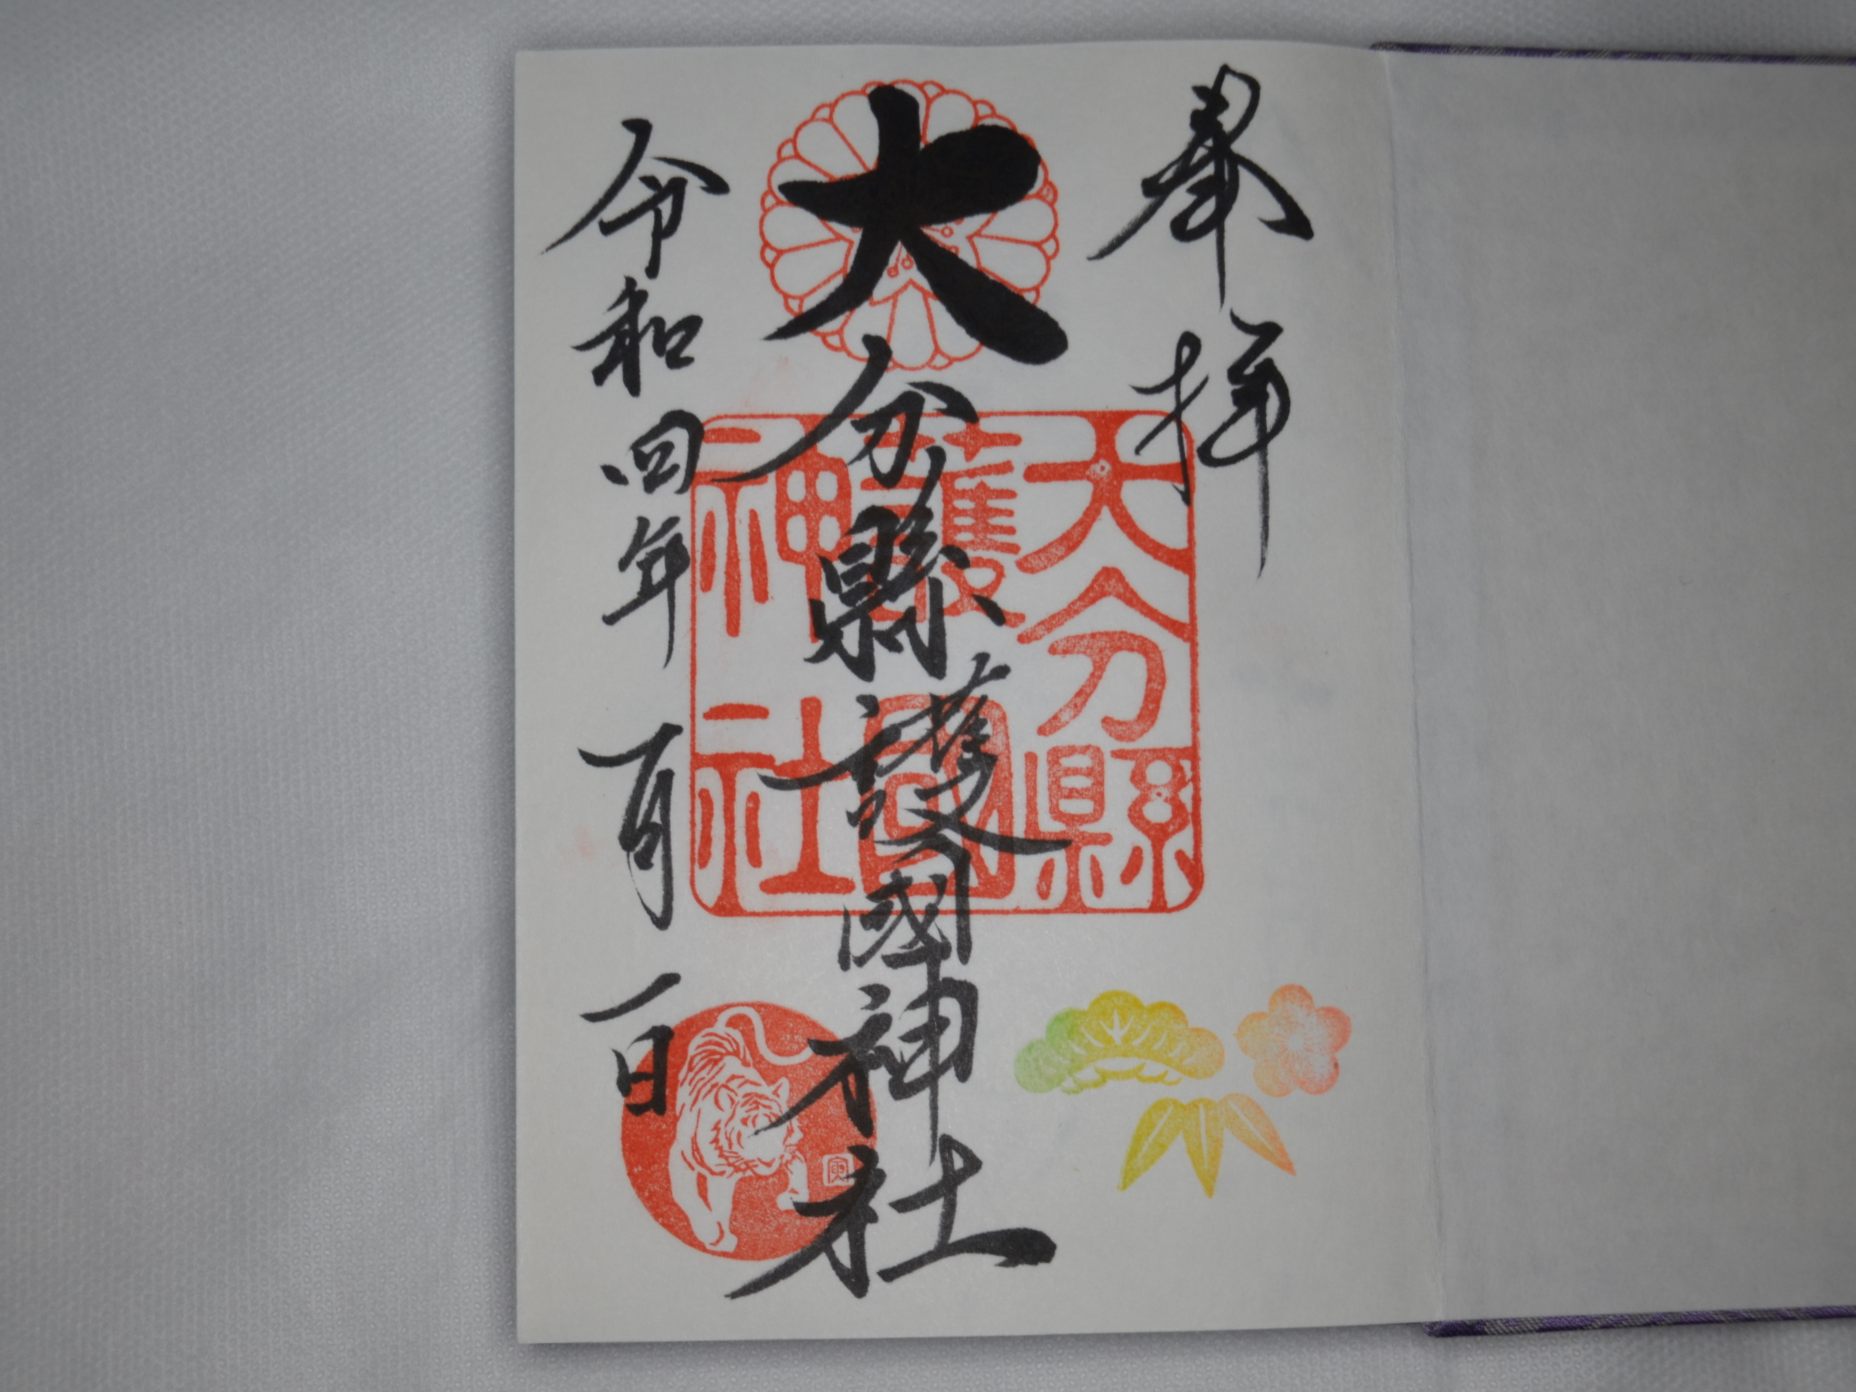 奉拝
大分縣護國神社
大分縣
護國
神社
令和四年一月一日
寅